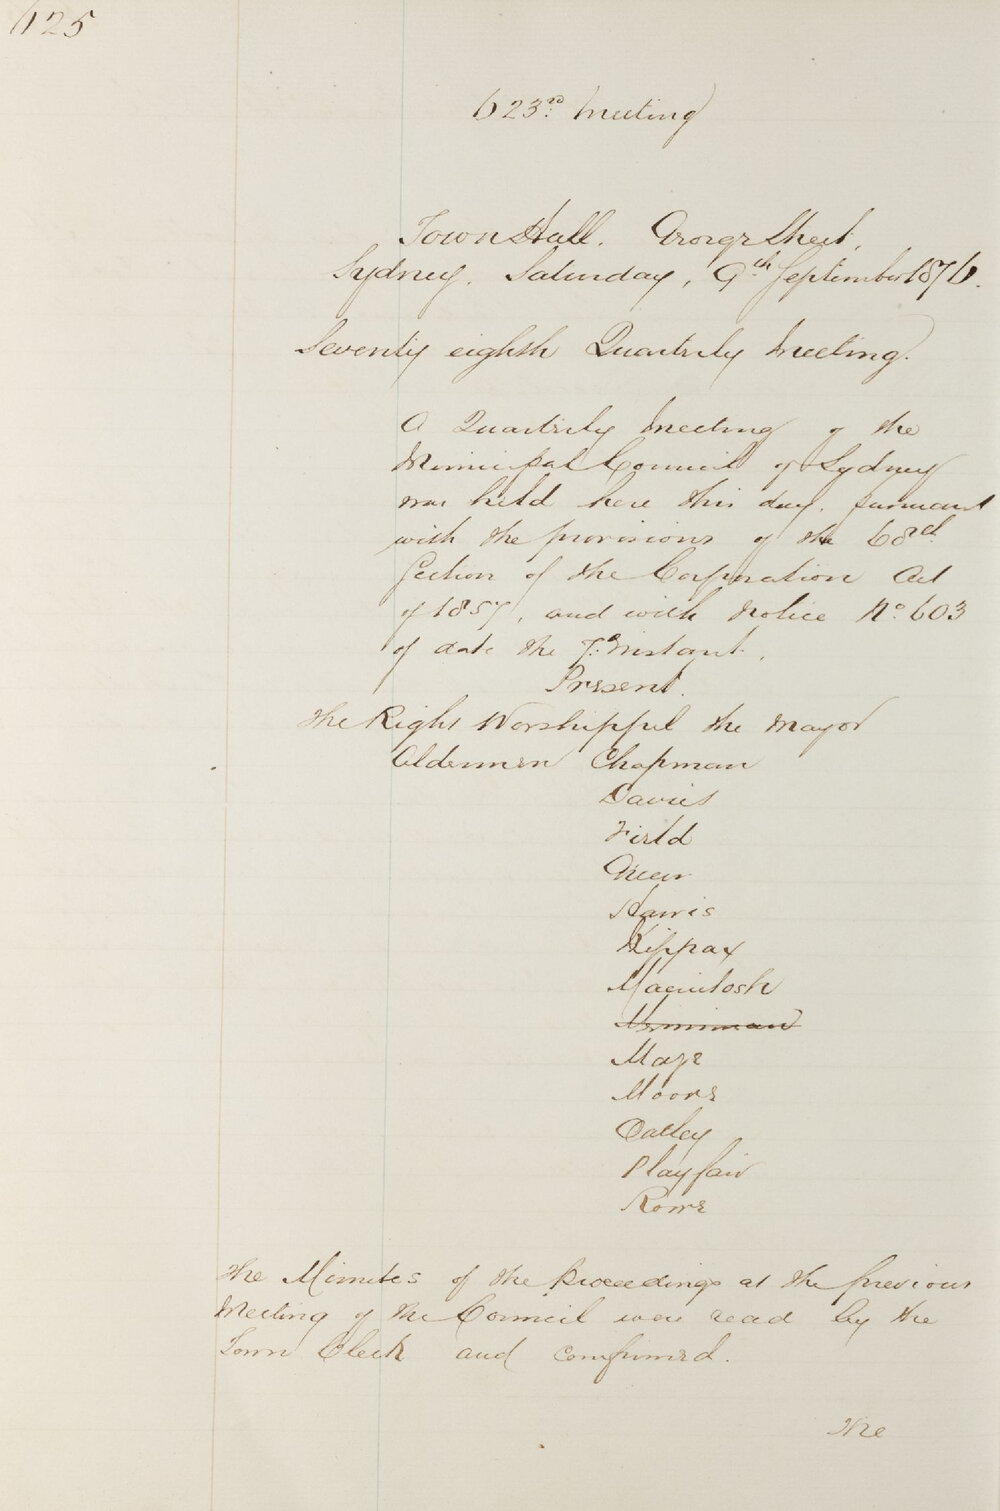 625
623rd Meeting
Town Hall. George Street,
Sydney. Saturday, 9th September 1876.
Seventy eighth Quarterly Meeting.
A Quarterly Meeting of the
Municipal Council of Sydney
was held here this day. pursuant
with the provisions of the 68th
Section of the Corporation Act
of 1857, and with Notice No. 603
of date the 7th Instant.
Present.
The Right Worshipful the Mayor
Aldermen Chapman
Davies
Field
Green
Harris
Kippax
Macintosh
Merriman
Maze
Moore
Oatley
Playfair
Rowe
The Minutes of the Proceedings at the previous
Meeting of the Council were read by the
Town Clerk and confirmed.
The